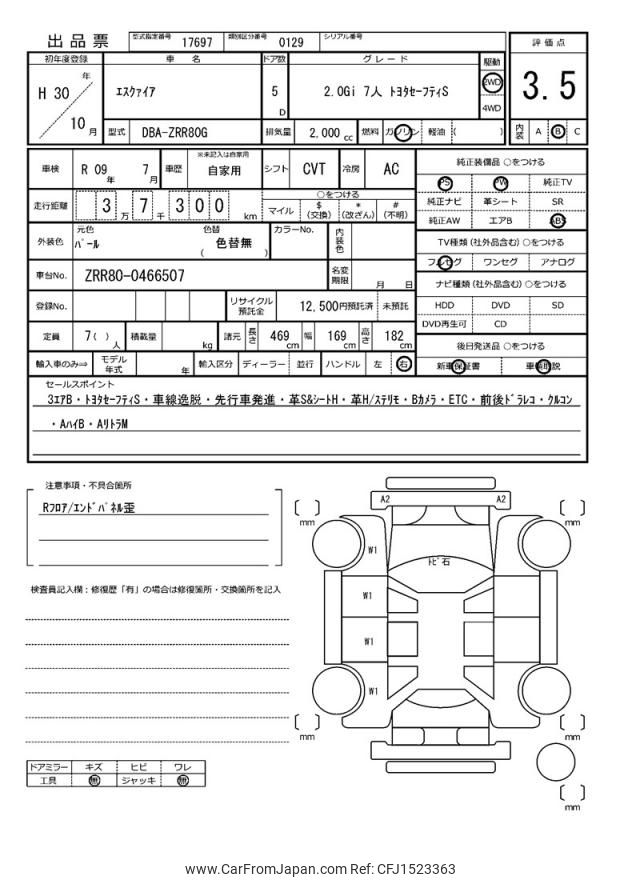 出品票 型式指定番号 17697 類別区分番号 0129 シリアル番号
初年度登録 車名 ドア数 グレード 駆動 評価点
H 30 年 10 月 エスクァイア 5 D 2.0Gi 7人 トヨタセーフティS 2WD 4WD 3.5
型式 DBA-ZRR80G 排気量 2,000 cc 燃料 ガソリン 軽油 ( ) 内装 A B C
車検 R 09 年 7 月 車歴 ※未記入は自家用 自家用 シフト CVT 冷房 AC
純正装備品 ○をつける
PS PW 純正TV
純正ナビ 革シート SR
純正AW エアB ABS
走行距離 3 万 7 千 3 0 0 km ○をつける マイル $ (交換) * (改ざん) # (不明)
外装色 元色 パール 色替 色替無 ( ) カラーNo. 内装色
TV種類 (社外品含む) ○をつける
フルセグ ワンセグ アナログ
車台No. ZRR80-0466507 名変期限 月 日
ナビ種類 (社外品含む) ○をつける
HDD DVD SD
DVD再生可 CD
登録No. リサイクル預託金 12,500円預託済 未預託
定員 7( ) 人 積載量 kg 諸元 長さ 469 cm 幅 169 cm 高さ 182 cm
後日発送品 ○をつける
新車保証書 車輌取説
輸入車のみ⇒ モデル年式 年 輸入区分 ディーラー 並行 ハンドル 左 右
セールスポイント
3エアB・トヨタセーフティS・車線逸脱・先行車発進・革S&シートH・革H/ステリモ・Bカメラ・ETC・前後ドラレコ・クルコン
・AハイB・AリトラM
注意事項・不具合箇所
Rフロア/エンドパネル歪
検査員記入欄:修復歴「有」の場合は修復箇所・交換箇所を記入
A2 A2
mm mm
W1
トビ石
W1
W1
W1
mm mm
mm
ドアミラー キズ ヒビ ワレ
工具 無 ジャッキ 無
www.CarFromJapan.com Ref: CFJ1523363